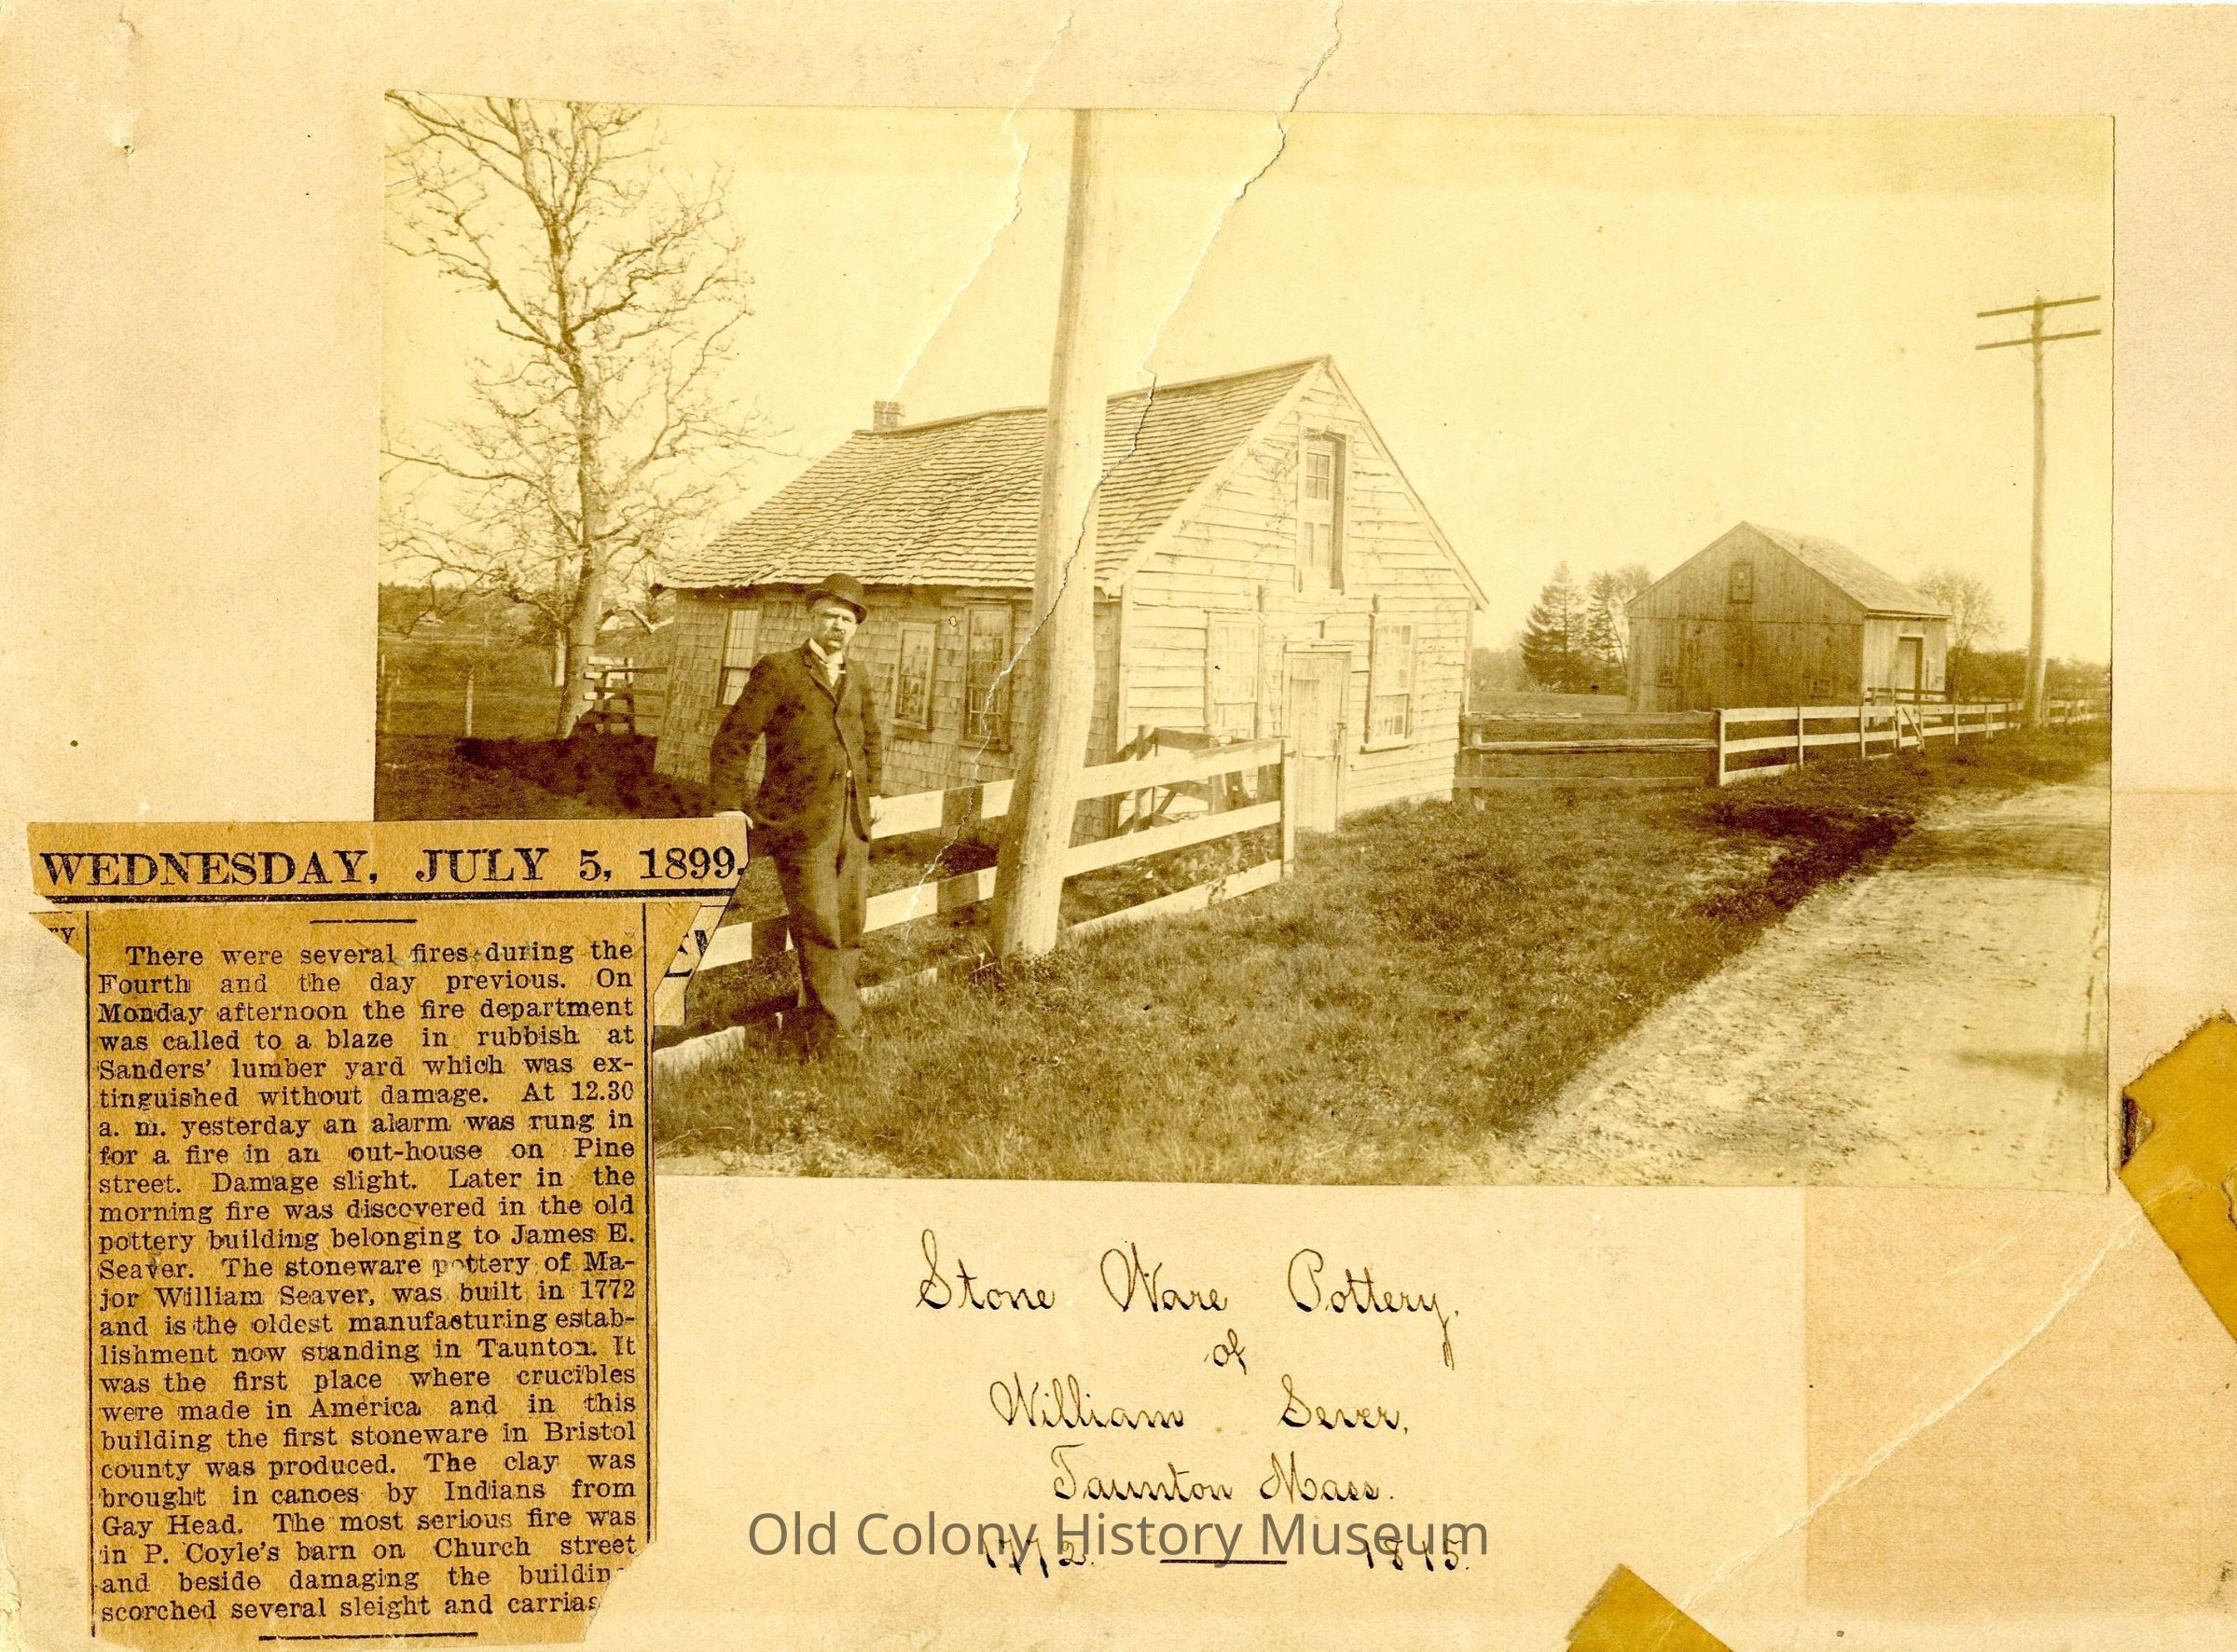 WEDNESDAY, JULY 5, 1899.
ry
There were several fires during the
Fourth and the day previous. On
Monday afternoon the fire department
was called to a blaze in rubbish at
Sanders' lumber yard which was ex-
tinguished without damage. At 12.30
a. m. yesterday an alarm was rung in
for a fire in an out-house on Pine
street. Damage slight. Later in the
morning fire was discovered in the old
pottery building belonging to James E.
Seaver. The stoneware pottery of Ma-
jor William Seaver, was built in 1772
and is the oldest manufacturing estab-
lishment now standing in Taunton. It
was the first place where crucibles
were made in America and in this
building the first stoneware in Bristol
county was produced. The clay was
brought in canoes by Indians from
Gay Head. The most serious fire was
in P. Coyle's barn on Church street
and beside damaging the buildin
scorched several sleight and carriag
Stone Ware Pottery.
of
William Sever,
Taunton Mass.
Old Colony History Museum
1772. —